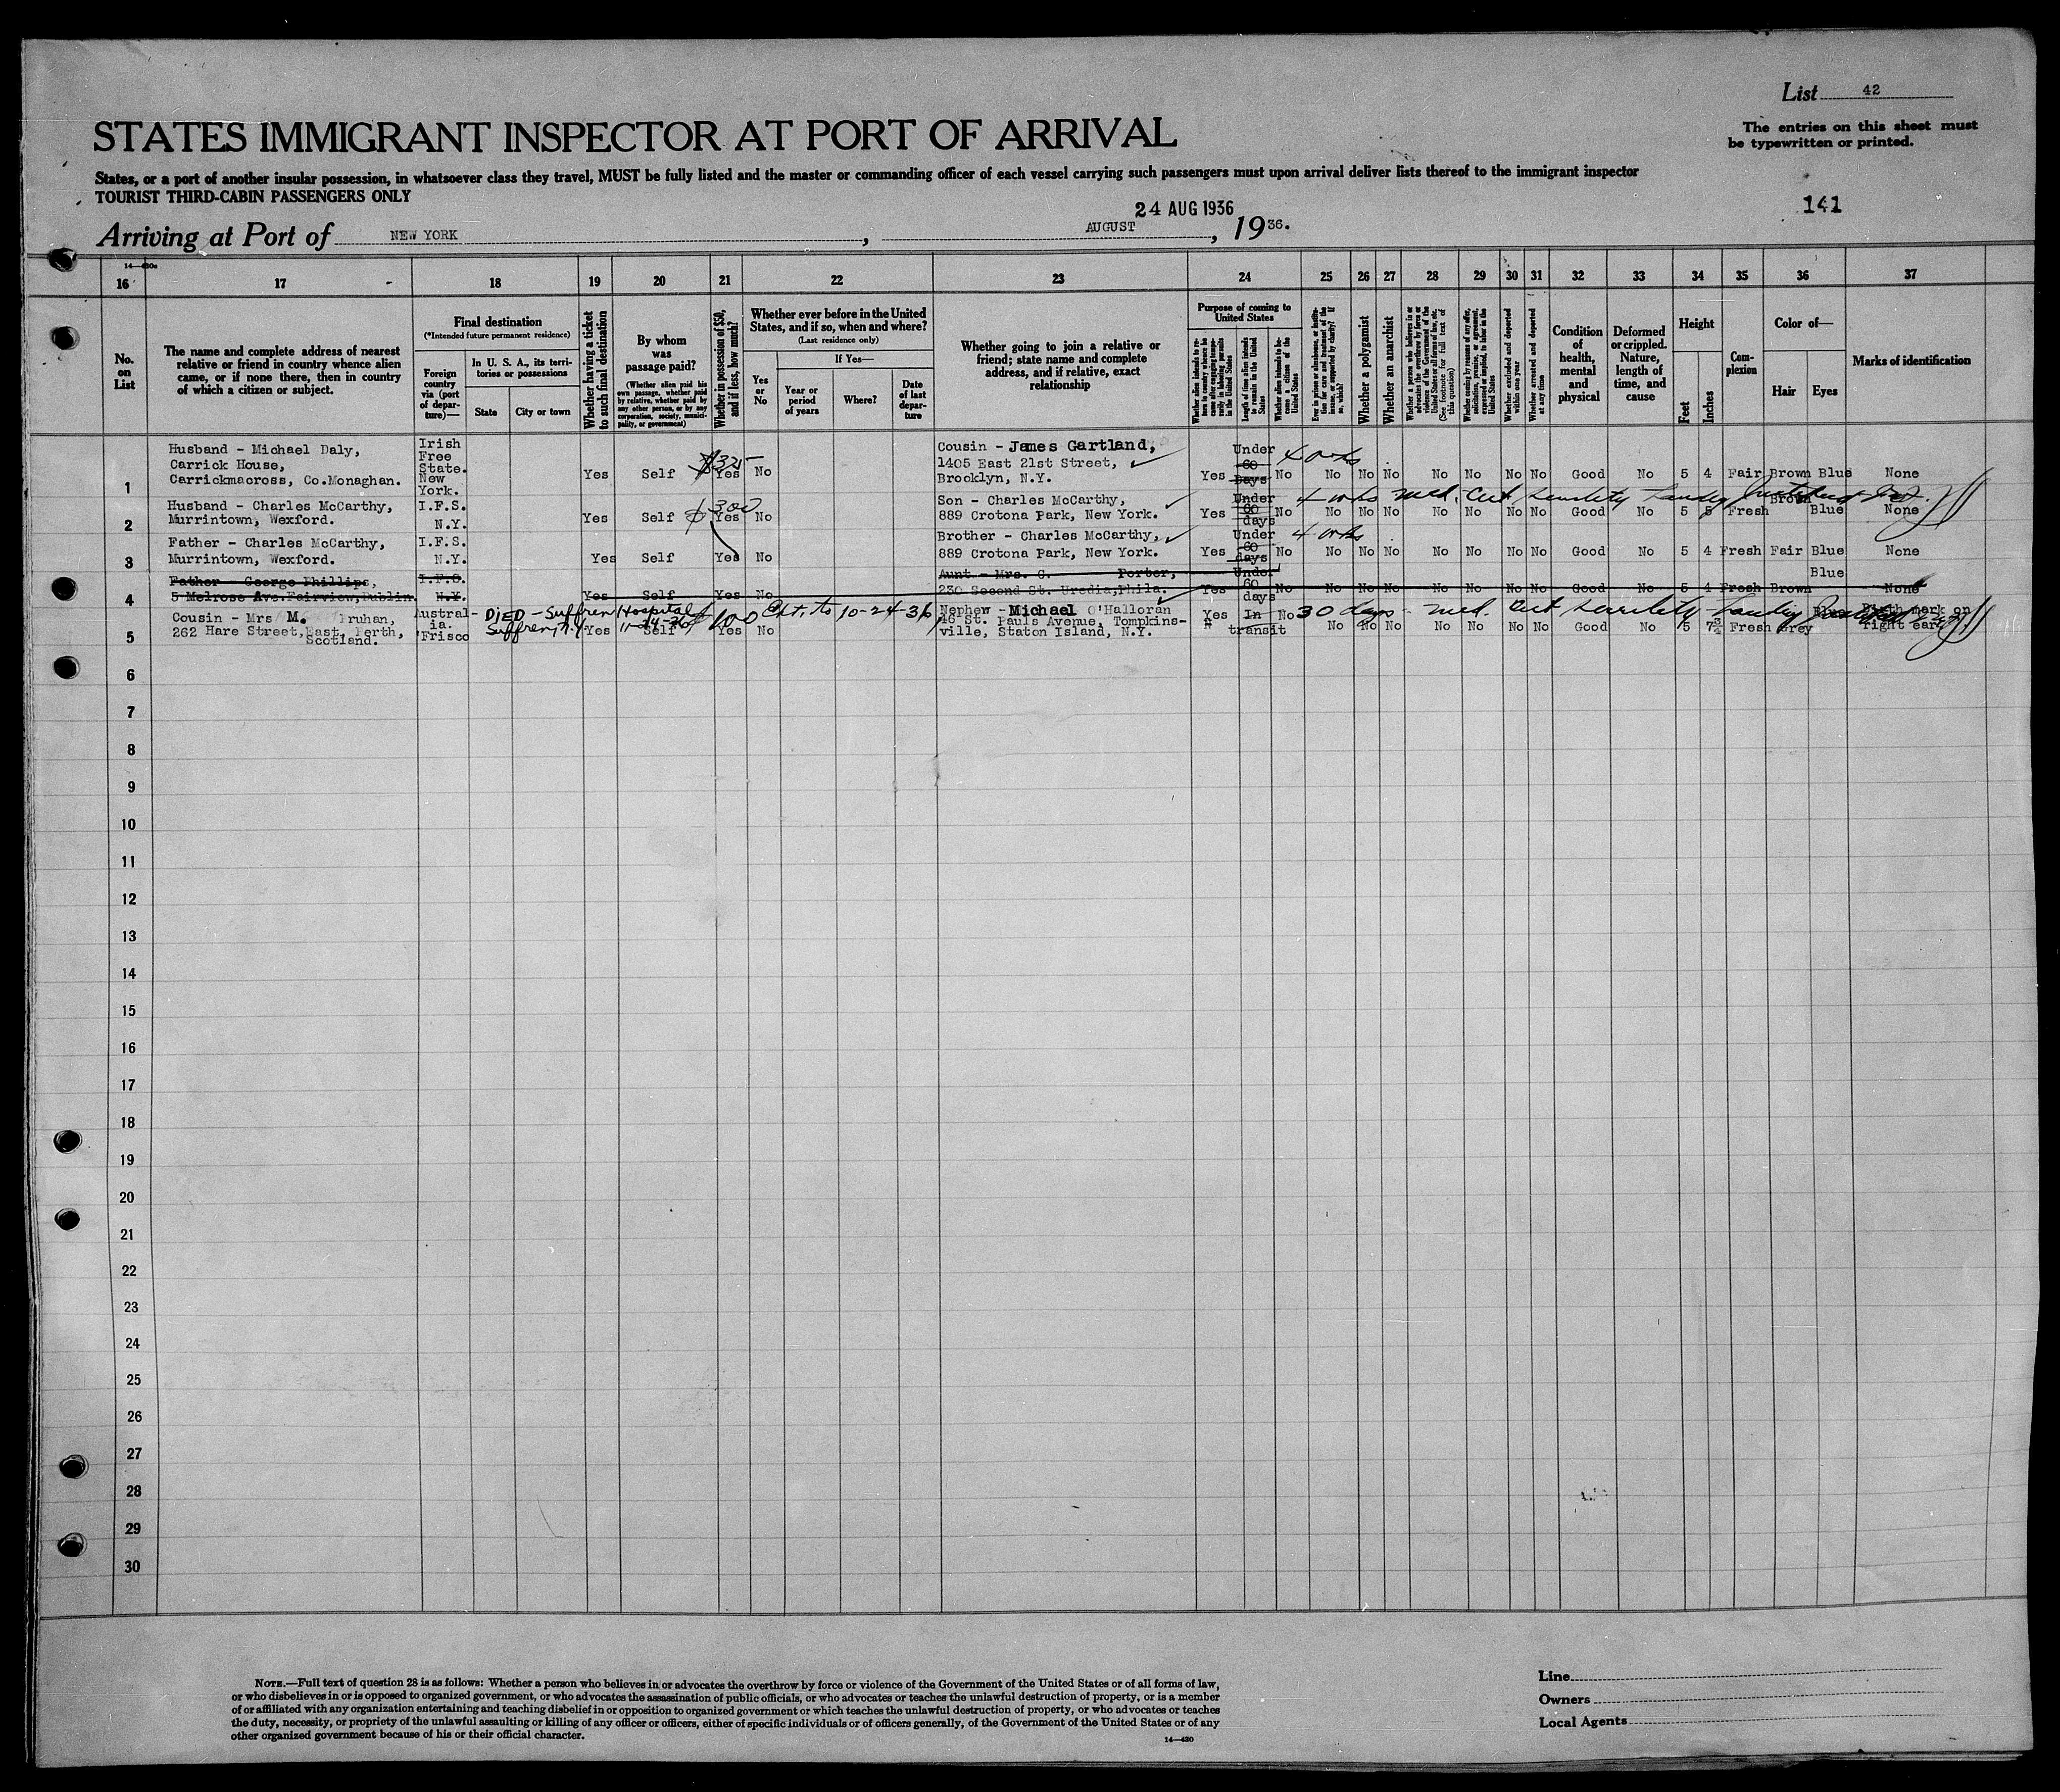 List 42
The entries on this sheet must
be typewritten or printed.
STATES IMMIGRANT INSPECTOR AT PORT OF ARRIVAL
States, or a port of another insular possession, in whatsoever class they travel, MUST be fully listed and the master or commanding officer of each vessel carrying such passengers must upon arrival deliver lists thereof to the immigrant inspector
TOURIST THIRD-CABIN PASSENGERS ONLY
141
24 AUG 1936
Arriving at Port of NEW YORK, AUGUST, 1936.
16 17 18 19 20 21 22 23 24 25 26 27 28 29 30 31 32 33 34 35 36 37
No. on List
The name and complete address of nearest relative or friend in country whence alien came, or if none there, then in country of which a citizen or subject.
Final destination
(*Intended future permanent residence)
Foreign country via (port of departure)—
In U. S. A., its territories or possessions
State
City or town
Whether having a ticket to such final destination
By whom was passage paid?
(Whether alien paid his own passage, whether paid by relative, whether paid by any other person, or by any corporation, society, municipality, or government)
Whether in possession of $50, and if less, how much?
Whether ever before in the United States, and if so, when and where?
(Last residence only)
Yes or No
If Yes—
Year or period of years
Where?
Date of last departure
Whether going to join a relative or friend; state name and complete address, and if relative, exact relationship
Purpose of coming to United States
Length of time alien intends to remain in the United States
Whether alien intends to become a citizen of the United States
Whether a polygamist
Whether an anarchist
Whether excluded and deported within one year
Whether arrested and deported at any time
Condition of health, mental and physical
Deformed or crippled. Nature, length of time, and cause
Height
Feet
Inches
Complexion
Color of—
Hair
Eyes
Marks of identification
1 Husband - Michael Daly, Carrick House, Carrickmacross, Co.Monaghan. Irish Free State. New York. Yes Self $325 Yes No Cousin - James Gartland, 1405 East 21st Street, Brooklyn, N.Y. Yes Under 60 Days 4 wks No No No No No No No No Good No 5 4 Fair Brown Blue None
2 Husband - Charles McCarthy, Murrintown, Wexford. I.F.S. N.Y. Yes Self 300 Yes No Son - Charles McCarthy, 889 Crotona Park, New York. Yes Under 60 days 4 wks No No No No No No No No Good No 5 5 Fresh Brown Blue None
3 Father - Charles McCarthy, Murrintown, Wexford. I.F.S. N.Y. Yes Self Yes No Brother - Charles McCarthy, 889 Crotona Park, New York. Yes Under 60 days 4 wks No No No No No No No No Good No 5 4 Fresh Fair Blue None
4 Father - George Phillips, 5 Melrose Ave.Fairview,Dublin. I.F.S. N.Y. Yes Self Yes No Aunt - Mrs. C. Porter, 230 Second St. Phila. Yes Under 60 days No No No No No No No No Good No 5 4 Fresh Brown Blue None
5 Cousin - Mrs M. Truhan, 262 Hare Street, East, Perth, Scotland. Australia. 'Frisco DIED - Suffren Hospital Suffren, N.Y. 11-24-36 Yes Self 100 Yes No Ext. to 10-24-36 Nephew - Michael O'Halloran 46 St. Pauls Avenue, Tompkinsville, Staton Island, N.Y. Yes In transit No 30 days No No No No No No No Good No 5 7¾ Fresh Grey Blue Birth mark on right ear
6
7
8
9
10
11
12
13
14
15
16
17
18
19
20
21
22
23
24
25
26
27
28
29
30
NOTE.—Full text of question 28 is as follows: Whether a person who believes in or advocates the overthrow by force or violence of the Government of the United States or of all forms of law,
or who disbelieves in or is opposed to organized government, or who advocates the assassination of public officials, or who advocates or teaches the unlawful destruction of property, or is a member
of or affiliated with any organization entertaining and teaching disbelief in or opposition to organized government or which teaches the unlawful destruction of property, or who advocates or teaches
the duty, necessity, or propriety of the unlawful assaulting or killing of any officer or officers, either of specific individuals or of officers generally, of the Government of the United States or of any
other organized government because of his or their official character.
14—430
Line
Owners
Local Agents